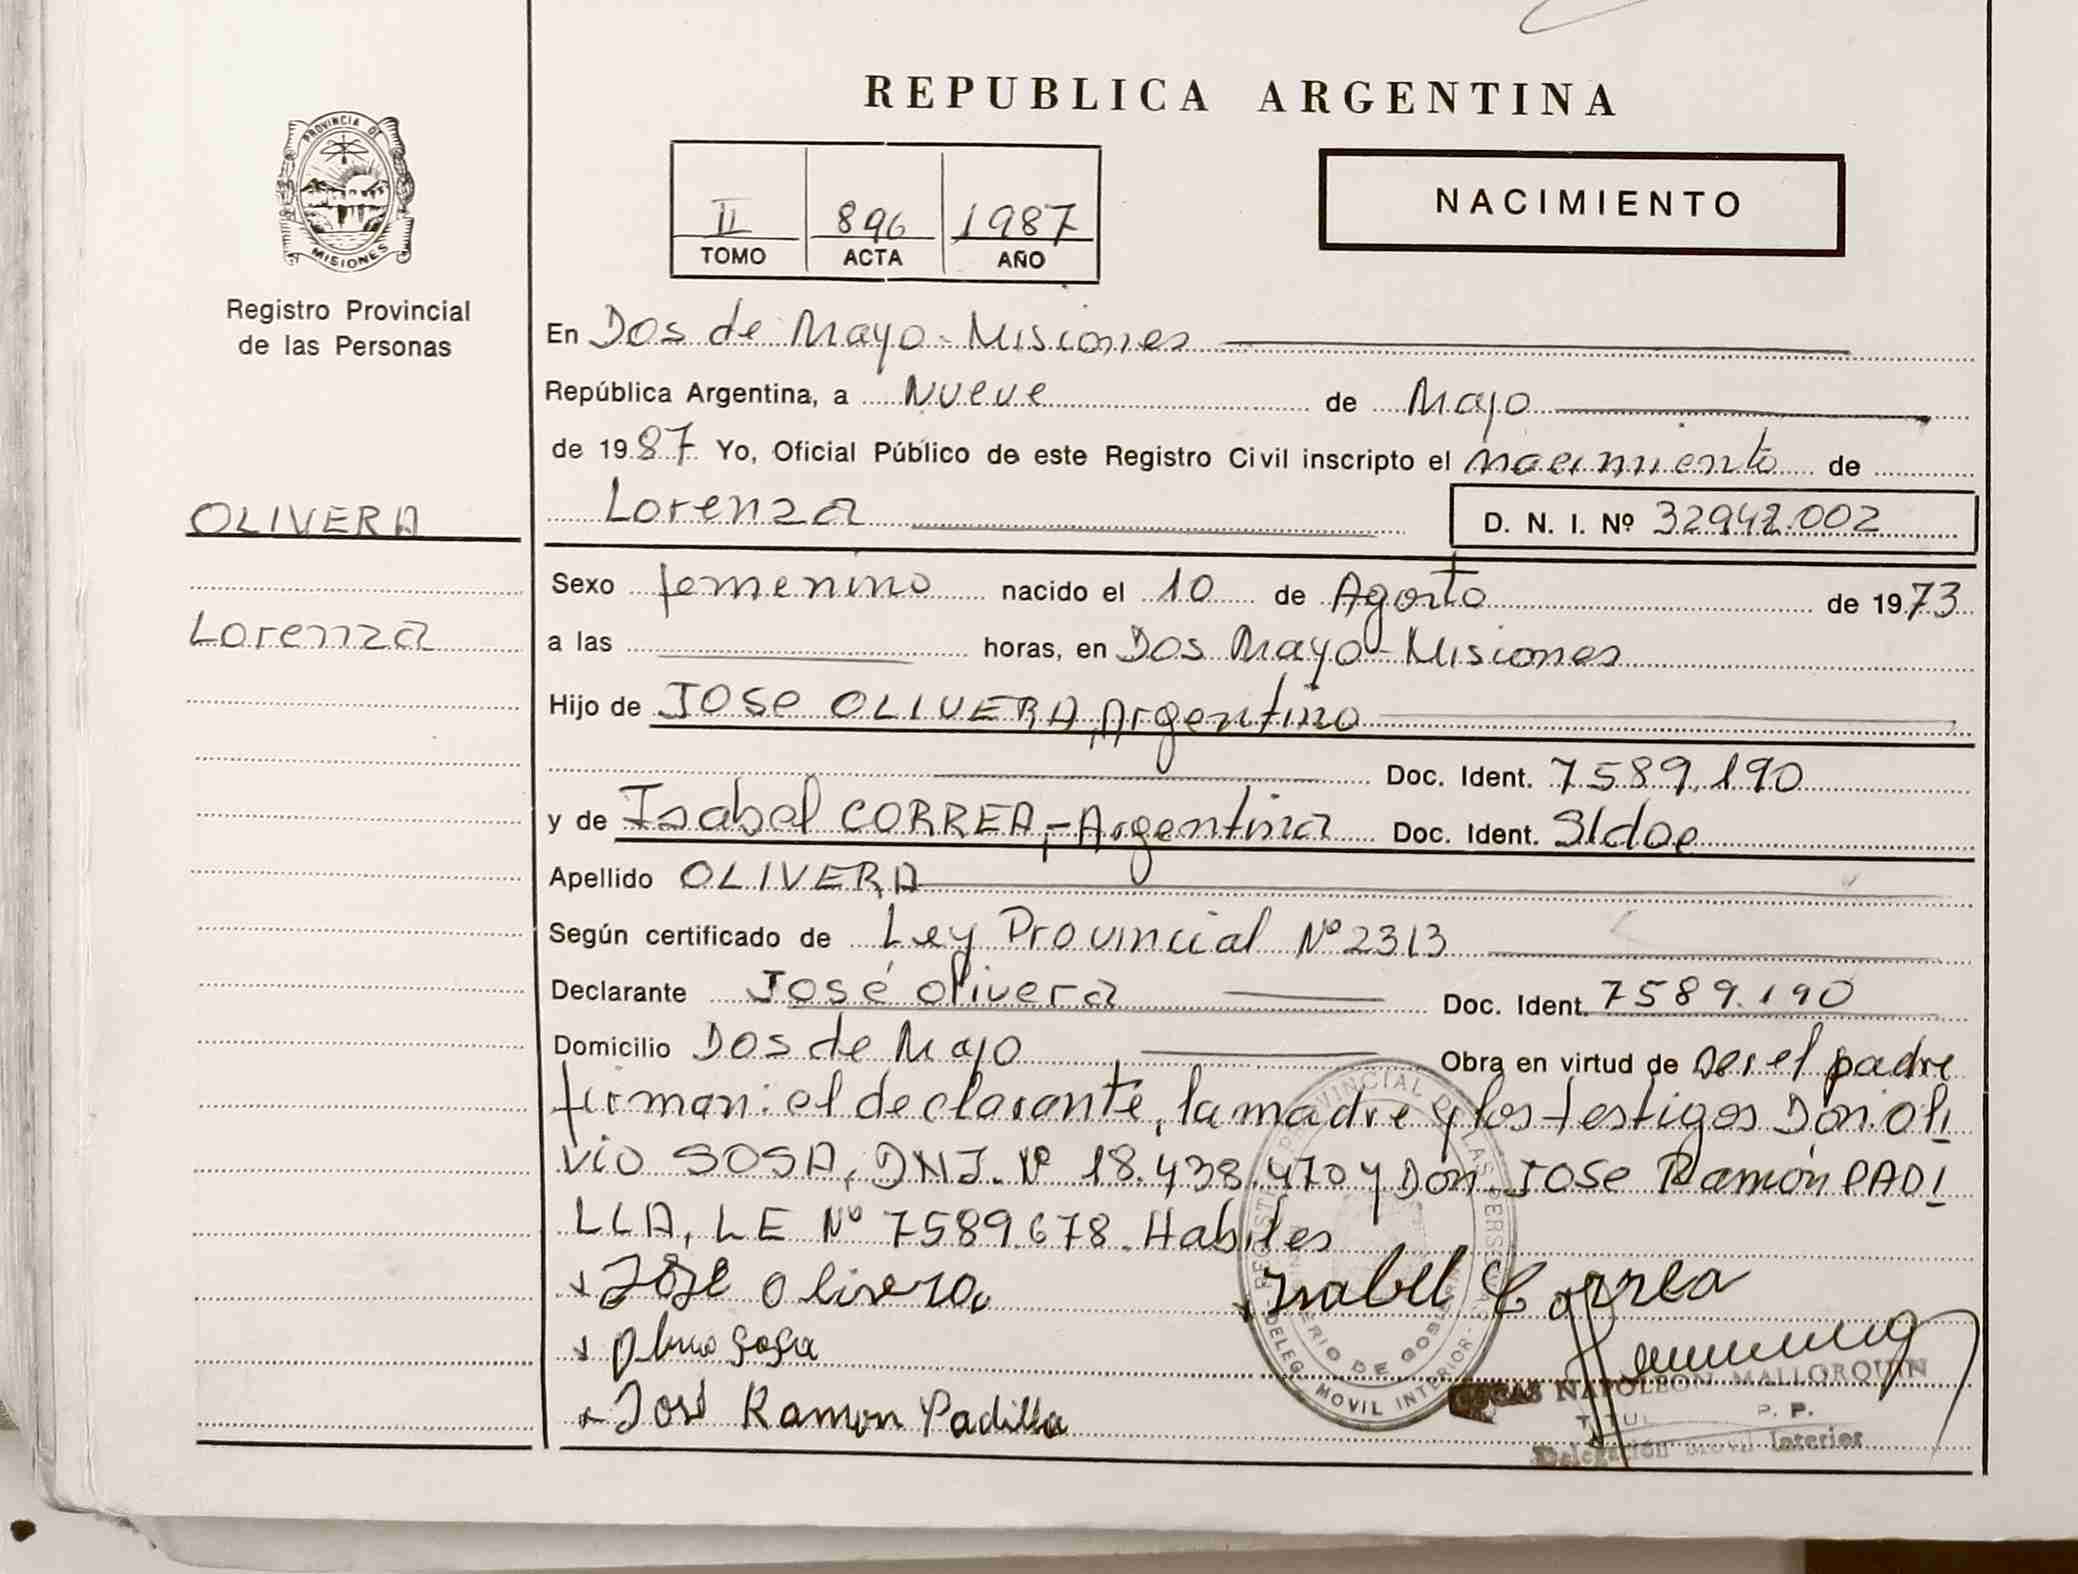 REPUBLICA ARGENTINA
PROVINCIA DE
MISIONES
Registro Provincial
de las Personas
II 896 1987
TOMO ACTA AÑO
NACIMIENTO
En Dos de Mayo - Misiones
República Argentina, a Nueve de Mayo
de 1987 Yo, Oficial Público de este Registro Civil inscripto el nacimiento de
OLIVERA
Lorenza D. N. I. Nº 32942.002
Sexo femenino nacido el 10 de Agosto de 1973
Lorenza
a las horas, en Dos Mayo - Misiones
Hijo de Jose OLIVERA, Argentino
Doc. Ident. 7589.190
y de Isabel CORREA,- Argentina Doc. Ident. S/doe
Apellido OLIVERA
Según certificado de Ley Provincial Nº 2313
Declarante José Olivera Doc. Ident. 7589.190
Domicilio Dos de Mayo Obra en virtud de ser el padre
firman: el declarante, la madre y los testigos Don Oli
vio SOSA, DNI. Nº 18.438.470 y Don Jose Ramón PADI
LLA, LE Nº 7589.678. Habiles
José Olivera Isabel Correa
Sosa
José Ramon Padilla
REGISTRO PROVINCIAL DE LAS PERSONAS
MINISTERIO DE GOBIERNO
DELEG. MOVIL INTERIOR
NAPOLEON MALLORQUIN
P. P.
Delegación Movil Interior